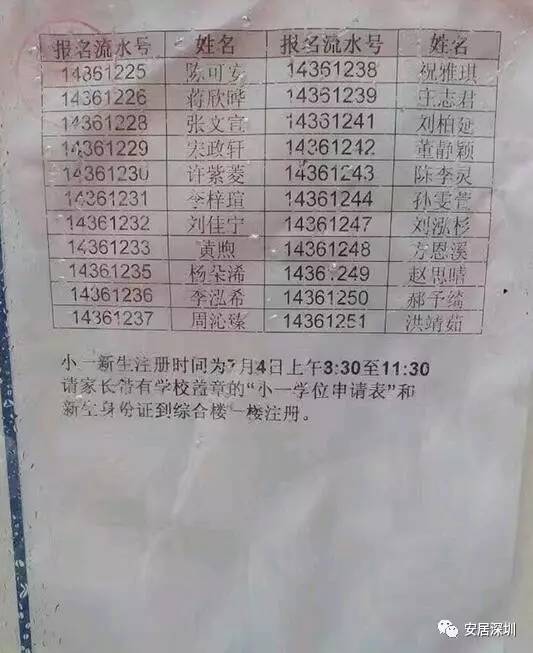 报名流水号 姓名 报名流水号 姓名
14361225 陈可安 14361238 祝雅琪
14361226 蒋欣晔 14361239 庄志君
14361228 张文宣 14361241 刘柏延
14361229 宋政轩 14361242 董静颖
14361230 许紫菱 14361243 陈李灵
14361231 李梓瑄 14361244 孙雯萱
14361232 刘佳宁 14361247 刘泓杉
14361233 黄煦 14361248 方恩溪
14361235 杨朵浠 14361249 赵思晴
14361236 李泓希 14361250 郝予
14361237 周沁臻 14361251 洪靖茹
小一新生注册时间为7月4日上午3:30至11:30
请家长带有学校盖章的“小一学位申请表”和
新生身份证到综合楼一楼注册。
安居深圳